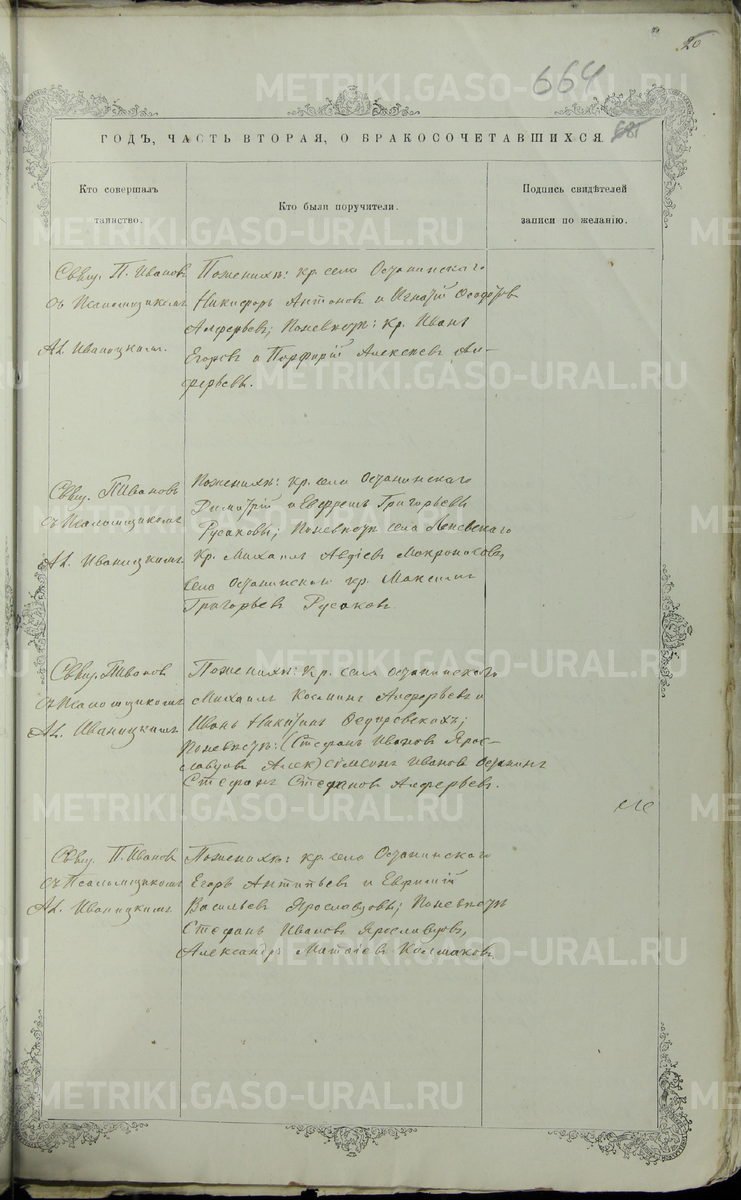 20
664
ГОДЪ, ЧАСТЬ ВТОРАЯ, О БРАКОСОЧЕТАВШИХСЯ.
Кто совершалъ
таинство.
Кто были поручители.
Подпись свидѣтелей
записи по желанію.
Свящ. П. Ивановъ
съ Псаломщикомъ
Ал. Иваницкимъ.
По женихѣ: кр. села Останинскаго
Никифоръ Антоновъ и Игнатій Ѳеодотовъ
Алферьевъ; по невѣстѣ: кр. Иванъ
Егоровъ и Порфирій Алексѣевъ Ал-
ферьевы.
Свящ. П. Ивановъ
съ Псаломщикомъ
Ал. Иваницкимъ
По женихѣ: кр. села Останинскаго
Димитрій и Григорьевы
Русаковы; по невѣстѣ села Леневскаго
кр. Михаилъ Авдіевъ Мокроносовъ,
села Останинскаго кр. Максимъ
Григорьевъ Русаковъ
Свящ. П. Ивановъ
съ Псаломщикомъ
Ал. Иваницкимъ
По женихѣ: кр. села Останинскаго
Михаилъ Косминъ Алферьевъ и
Иванъ Никитинъ
По невѣстѣ: (Стефанъ Ивановъ Ярос-
лавцовъ Алек) Сімеонъ Ивановъ Останинъ
Стефанъ Стефановъ Алферьевъ.
Свящ. П. Ивановъ
съ Псаломщикомъ
Ал. Иваницкимъ
По женихѣ: кр. села Останинскаго
Егоръ Антипьевъ и Евфимій
Васильевъ Ярославцовы; по невѣстѣ
Стефанъ Ивановъ Ярославцовъ,
Александръ Матѳіевъ Колмаковъ
METRIKI.GASO-URAL.RU